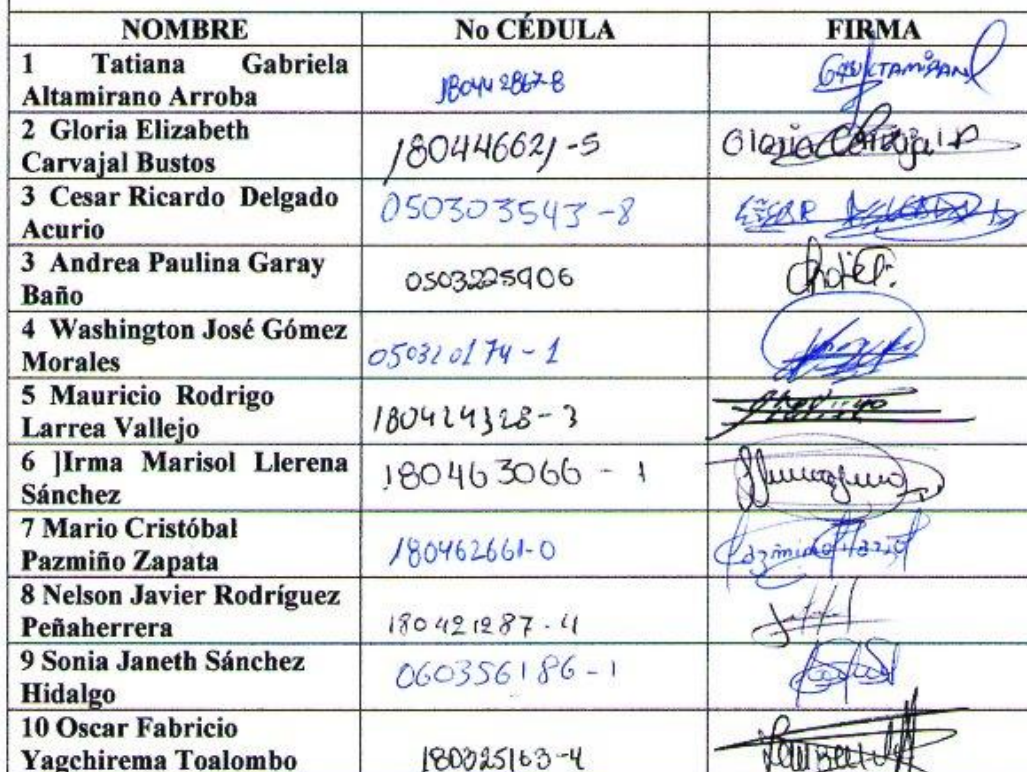 NOMBRE No CÉDULA FIRMA
1 Tatiana Gabriela
Altamirano Arroba 180442867-8
2 Gloria Elizabeth
Carvajal Bustos 180446621-5 Gloria Carvajal
3 Cesar Ricardo Delgado
Acurio 050303543-8 CESAR DELGADO
3 Andrea Paulina Garay
Baño 0503225906
4 Washington José Gómez
Morales 050320174-1
5 Mauricio Rodrigo
Larrea Vallejo 180424328-3
6 ]Irma Marisol Llerena
Sánchez 180463066-1
7 Mario Cristóbal
Pazmiño Zapata 180462661-0 Pazmiño Mario
8 Nelson Javier Rodríguez
Peñaherrera 180421287-4
9 Sonia Janeth Sánchez
Hidalgo 060356186-1
10 Oscar Fabricio
Yagchirema Toalombo 180325163-4